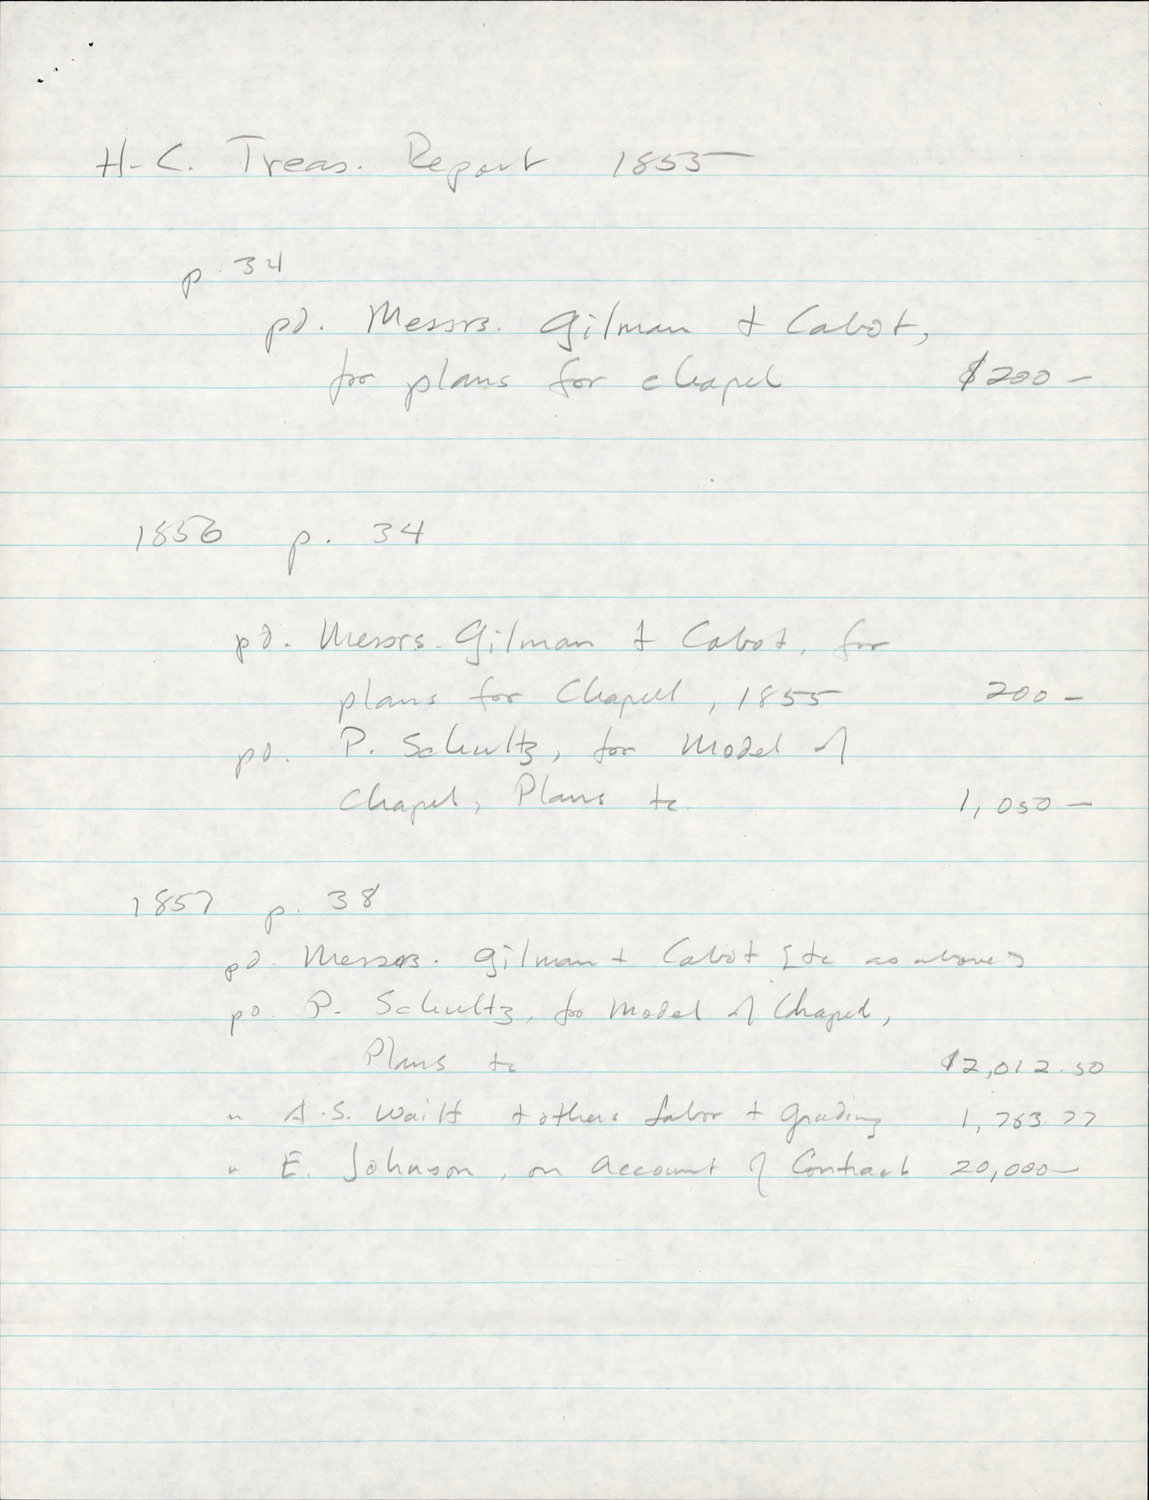 H.C. Treas. Report 1855
p. 34
pd. Messrs. Gilman + Cabot,
for plans for chapel $200 –
1856 p. 34
pd. Messrs. Gilman + Cabot, for
plans for Chapel, 1855 200 –
pd. P. Schultz, for Model of
Chapel, Plans +c. 1,050 –
1857 p. 38
pd. Messrs. Gilman + Cabot [+c as above]
pd. P. Schultz, for Model of Chapel,
Plans +c $2,012.50
" A.S. Waitt + others labor + grading 1,763.77
" E. Johnson, on account of Contract 20,000 –